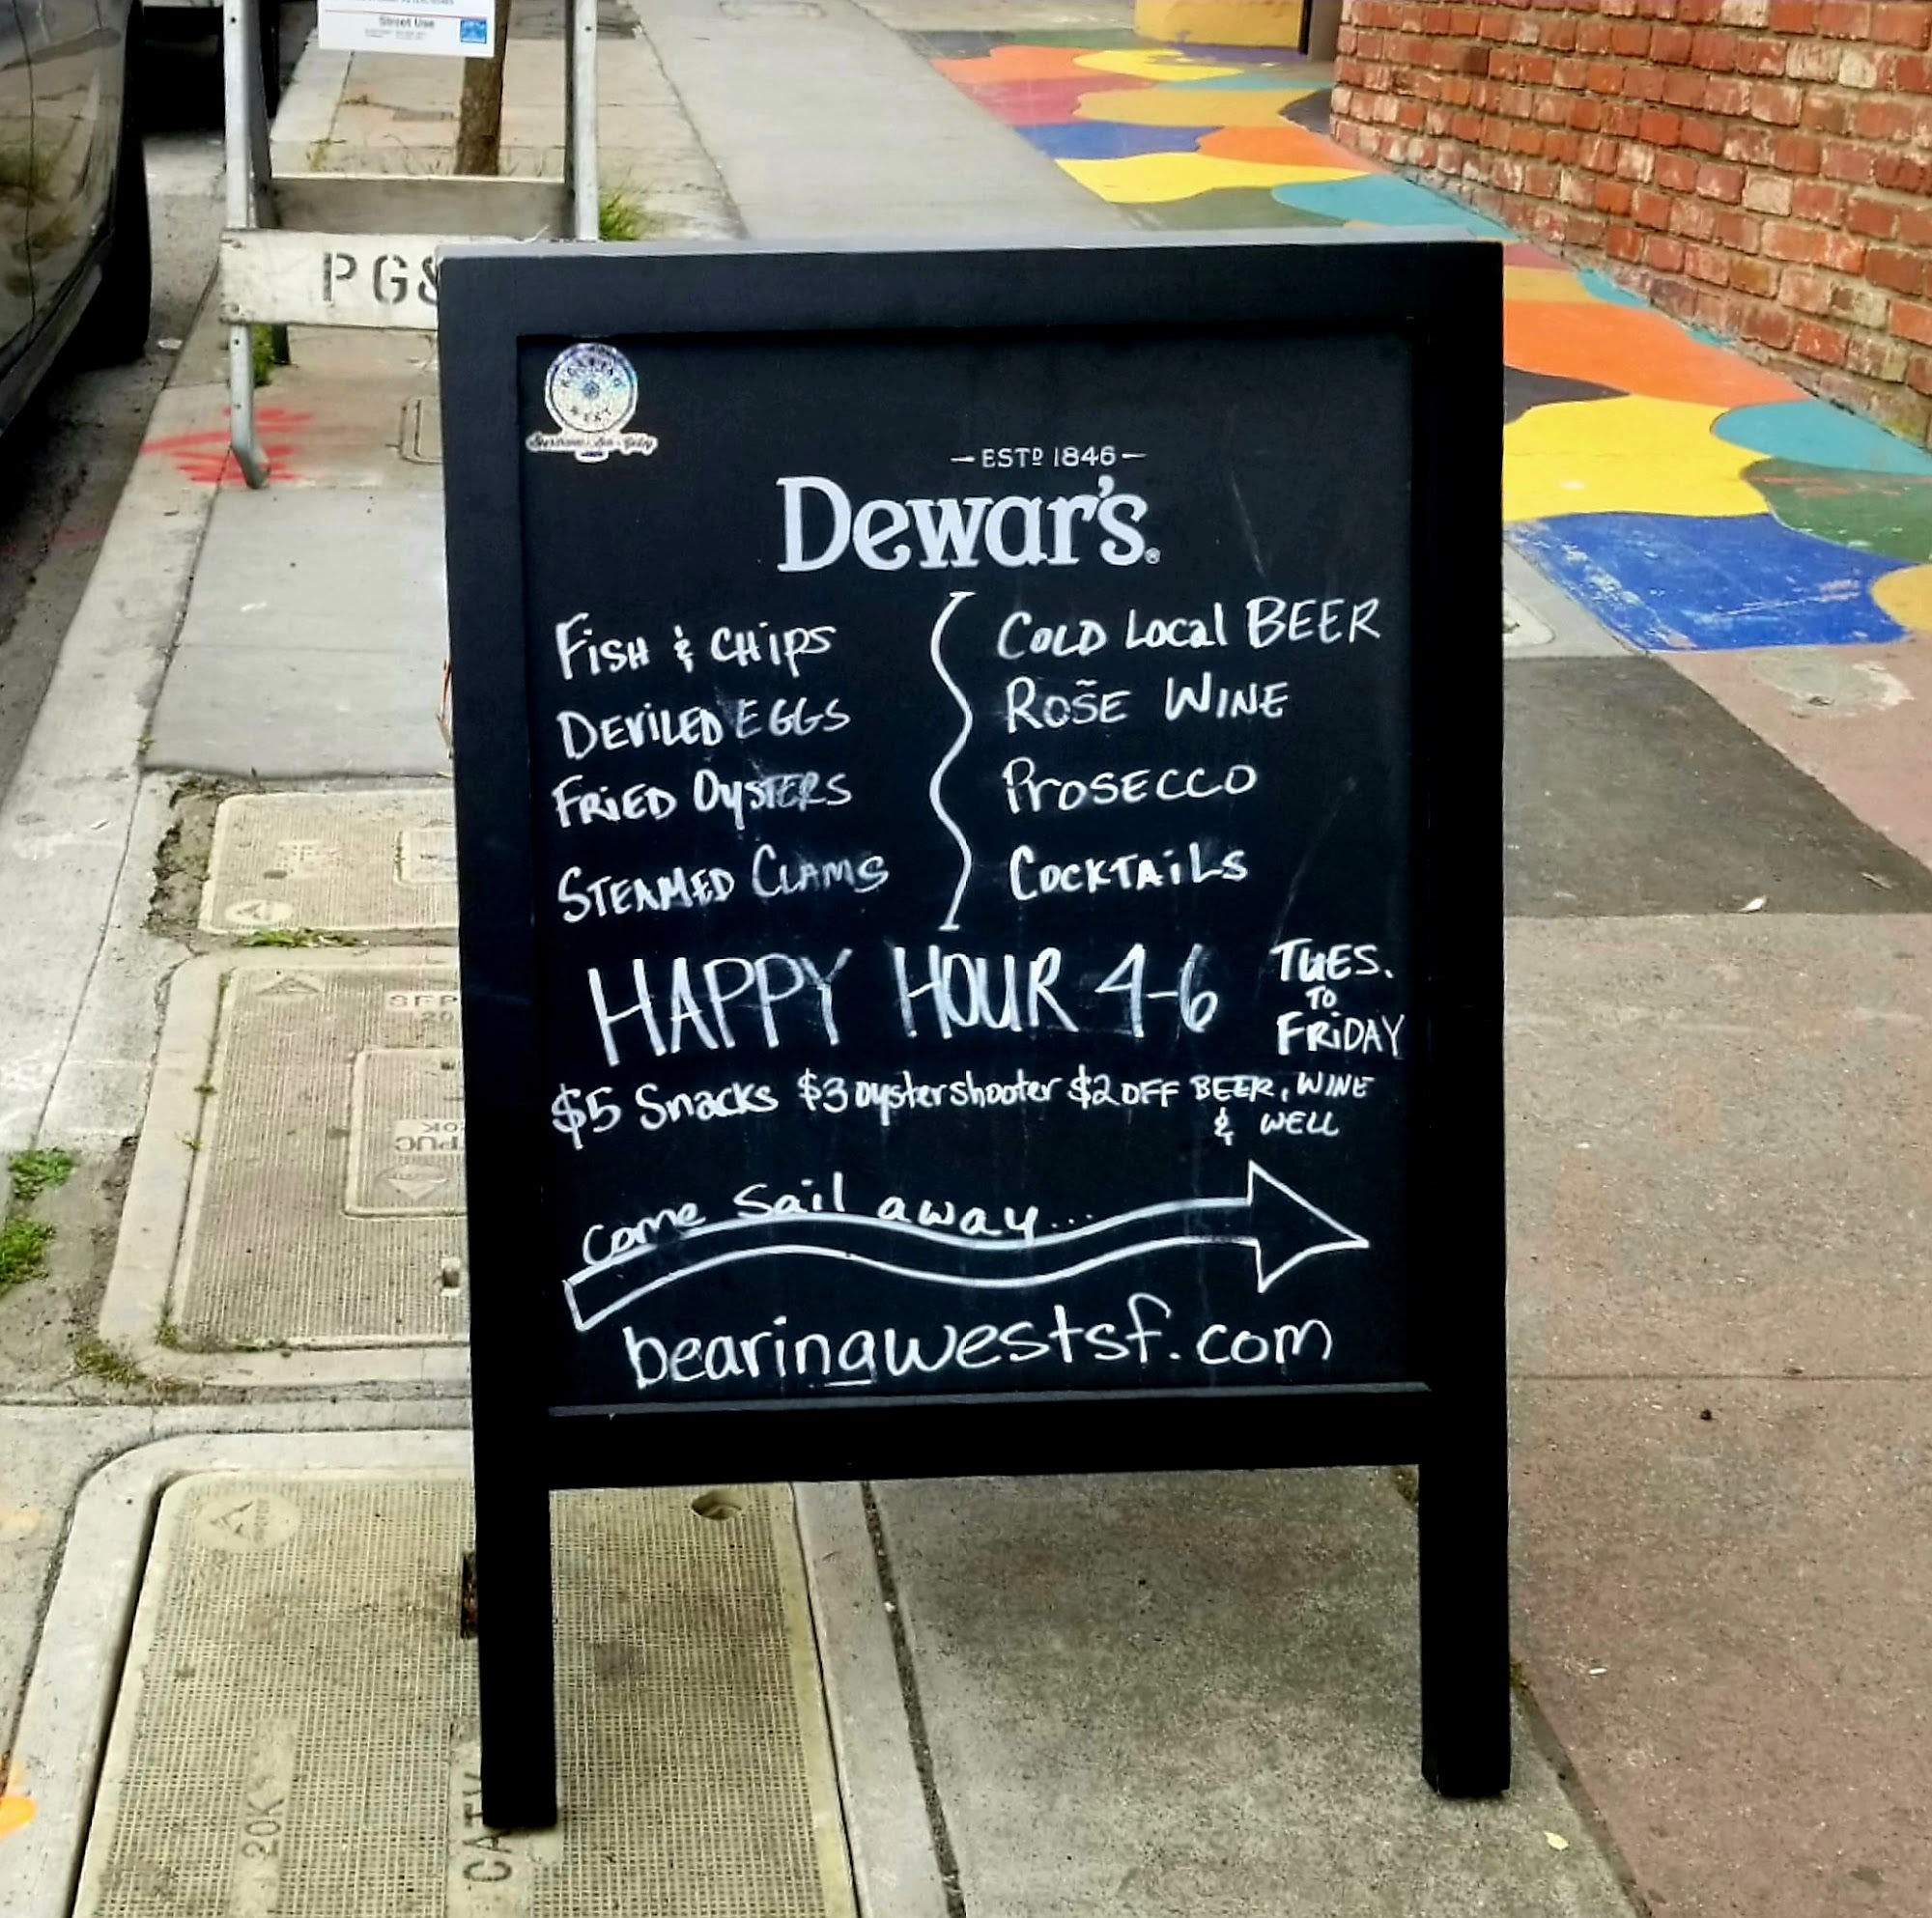 Street Use
PG&
BEARING
WEST
ESTD 1846
Dewar's®
FiSH & CHiPS
DEViLED EGGS
FRiED OySTERS
STEAMED CLAMS
COLD Local BEER
ROSẼ WINE
PrOSECCO
COCKTAiLS
HAPPY HOUR 4-6
TUES.
TO
FRiDAY
$5 Snacks $3 oyster shooter $2 OFF BEER, WINE
& WELL
come Sail away...
bearingwestsf.com
20K
CATV